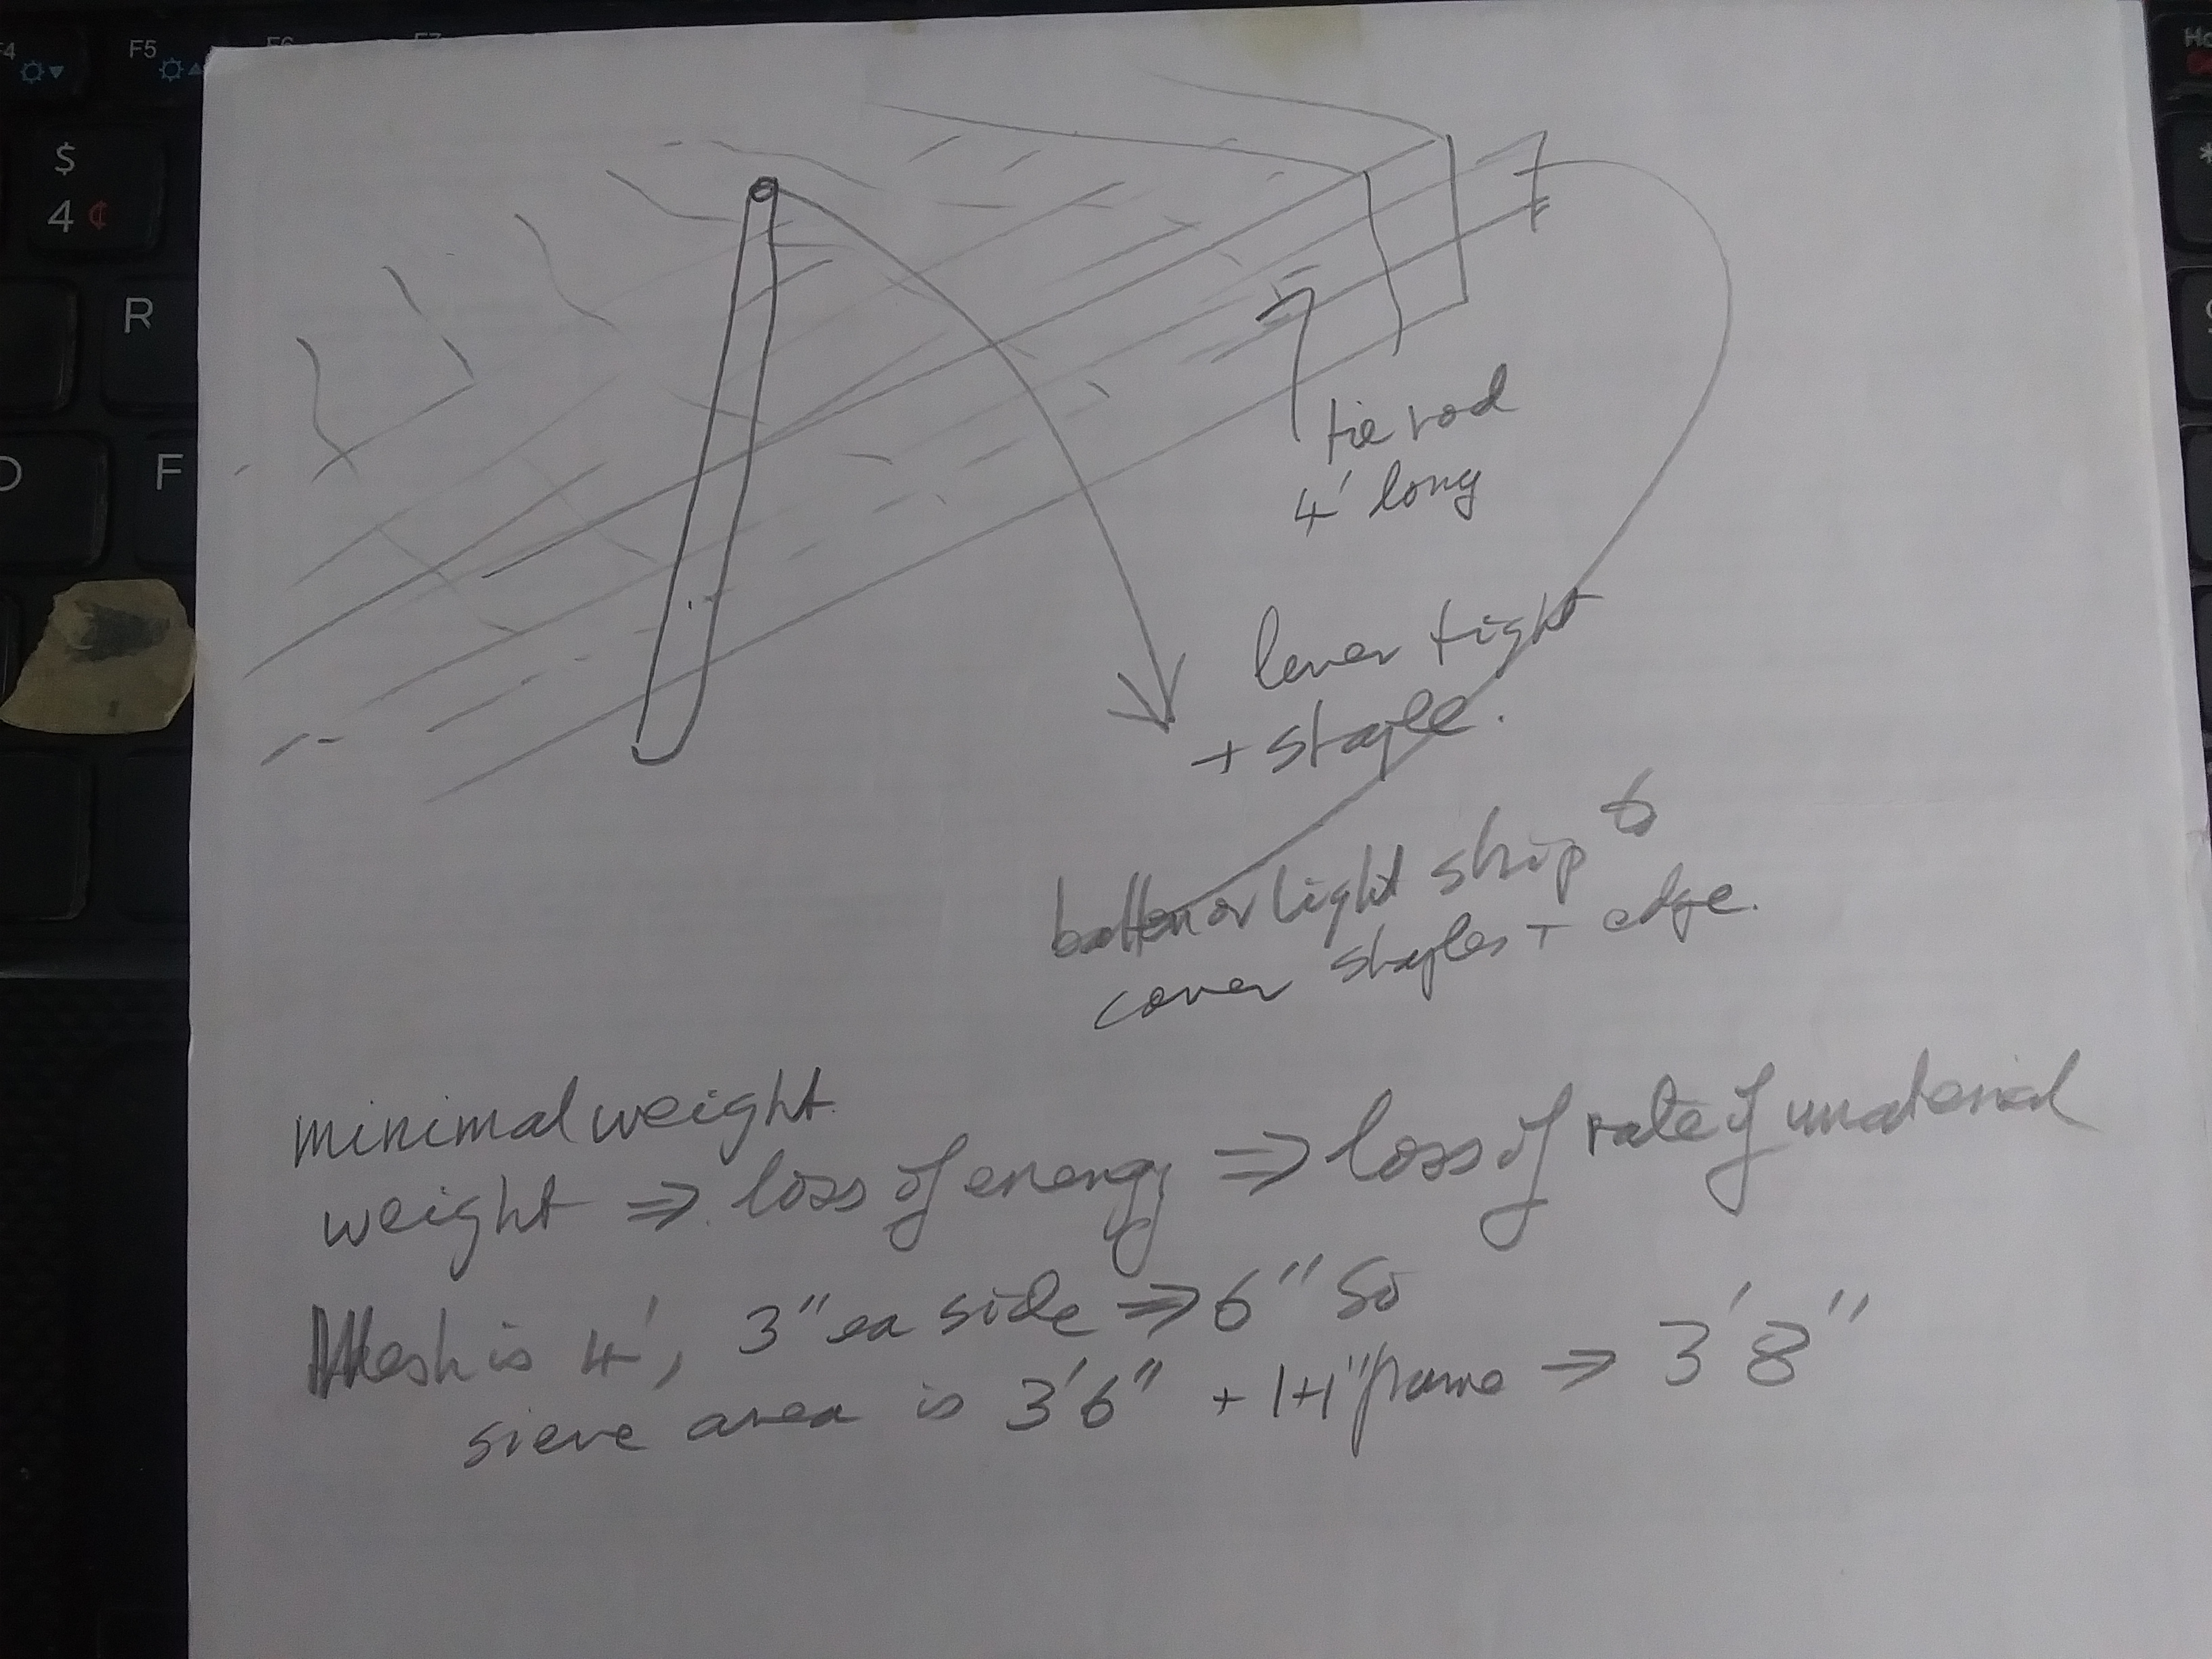 F4
F5
F6
F7
$
4 ¢
R
D
F
Ho
*
tie rod
4' long
lever tight
+ staple.
batten or light strip to
cover staples + edge.
minimal weight
weight ⇒ loss of energy ⇒ loss of rate of material
Mesh is 4', 3" ea side ⇒ 6" So
sieve area is 3'6" + 1+1" frame ⇒ 3'8"